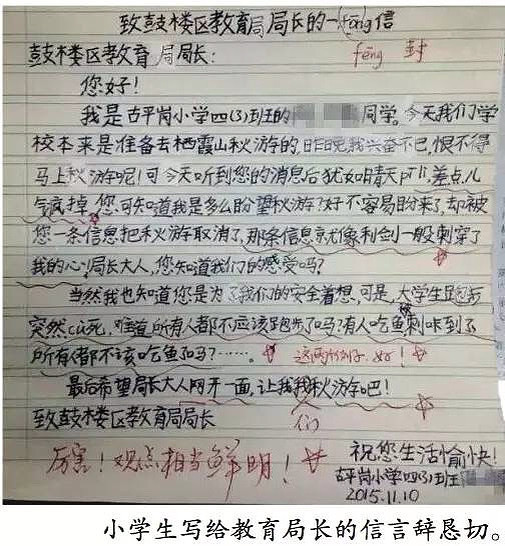 致鼓楼区教育局局长的一(fōng)信
鼓楼区教育局局长: fēng 封
您好!
我是古平岗小学四(3)班的 同学。今天我们学
校本来是准备去栖霞山秋游的,昨晚我兴奋不已,恨不得
马上秋游呢!可今天听到您的消息后犹如晴天pīlì,差点儿
气疯掉。您可知道我是多么盼望秋游?好不容易盼来了,却被
您一条信息把秋游取消了,那条信息就像利剑一般刺穿了
我的心!局长大人,您知道我们的感受吗?
当然我也知道您是为了我们的安全着想,可是,大学生跑步
突然cù死,难道所有人都不应该跑步了吗?有人吃鱼刺咔到了,
所有人都不该吃鱼了吗?……。 这两个例子好!
最后希望局长大人网开一面,让我我秋游吧!
致鼓楼区教育局局长 们
厉害!观点相当鲜明! 祝您生活愉快!
古平岗小学四(3)班
2015.11.10
小学生写给教育局长的信言辞恳切。